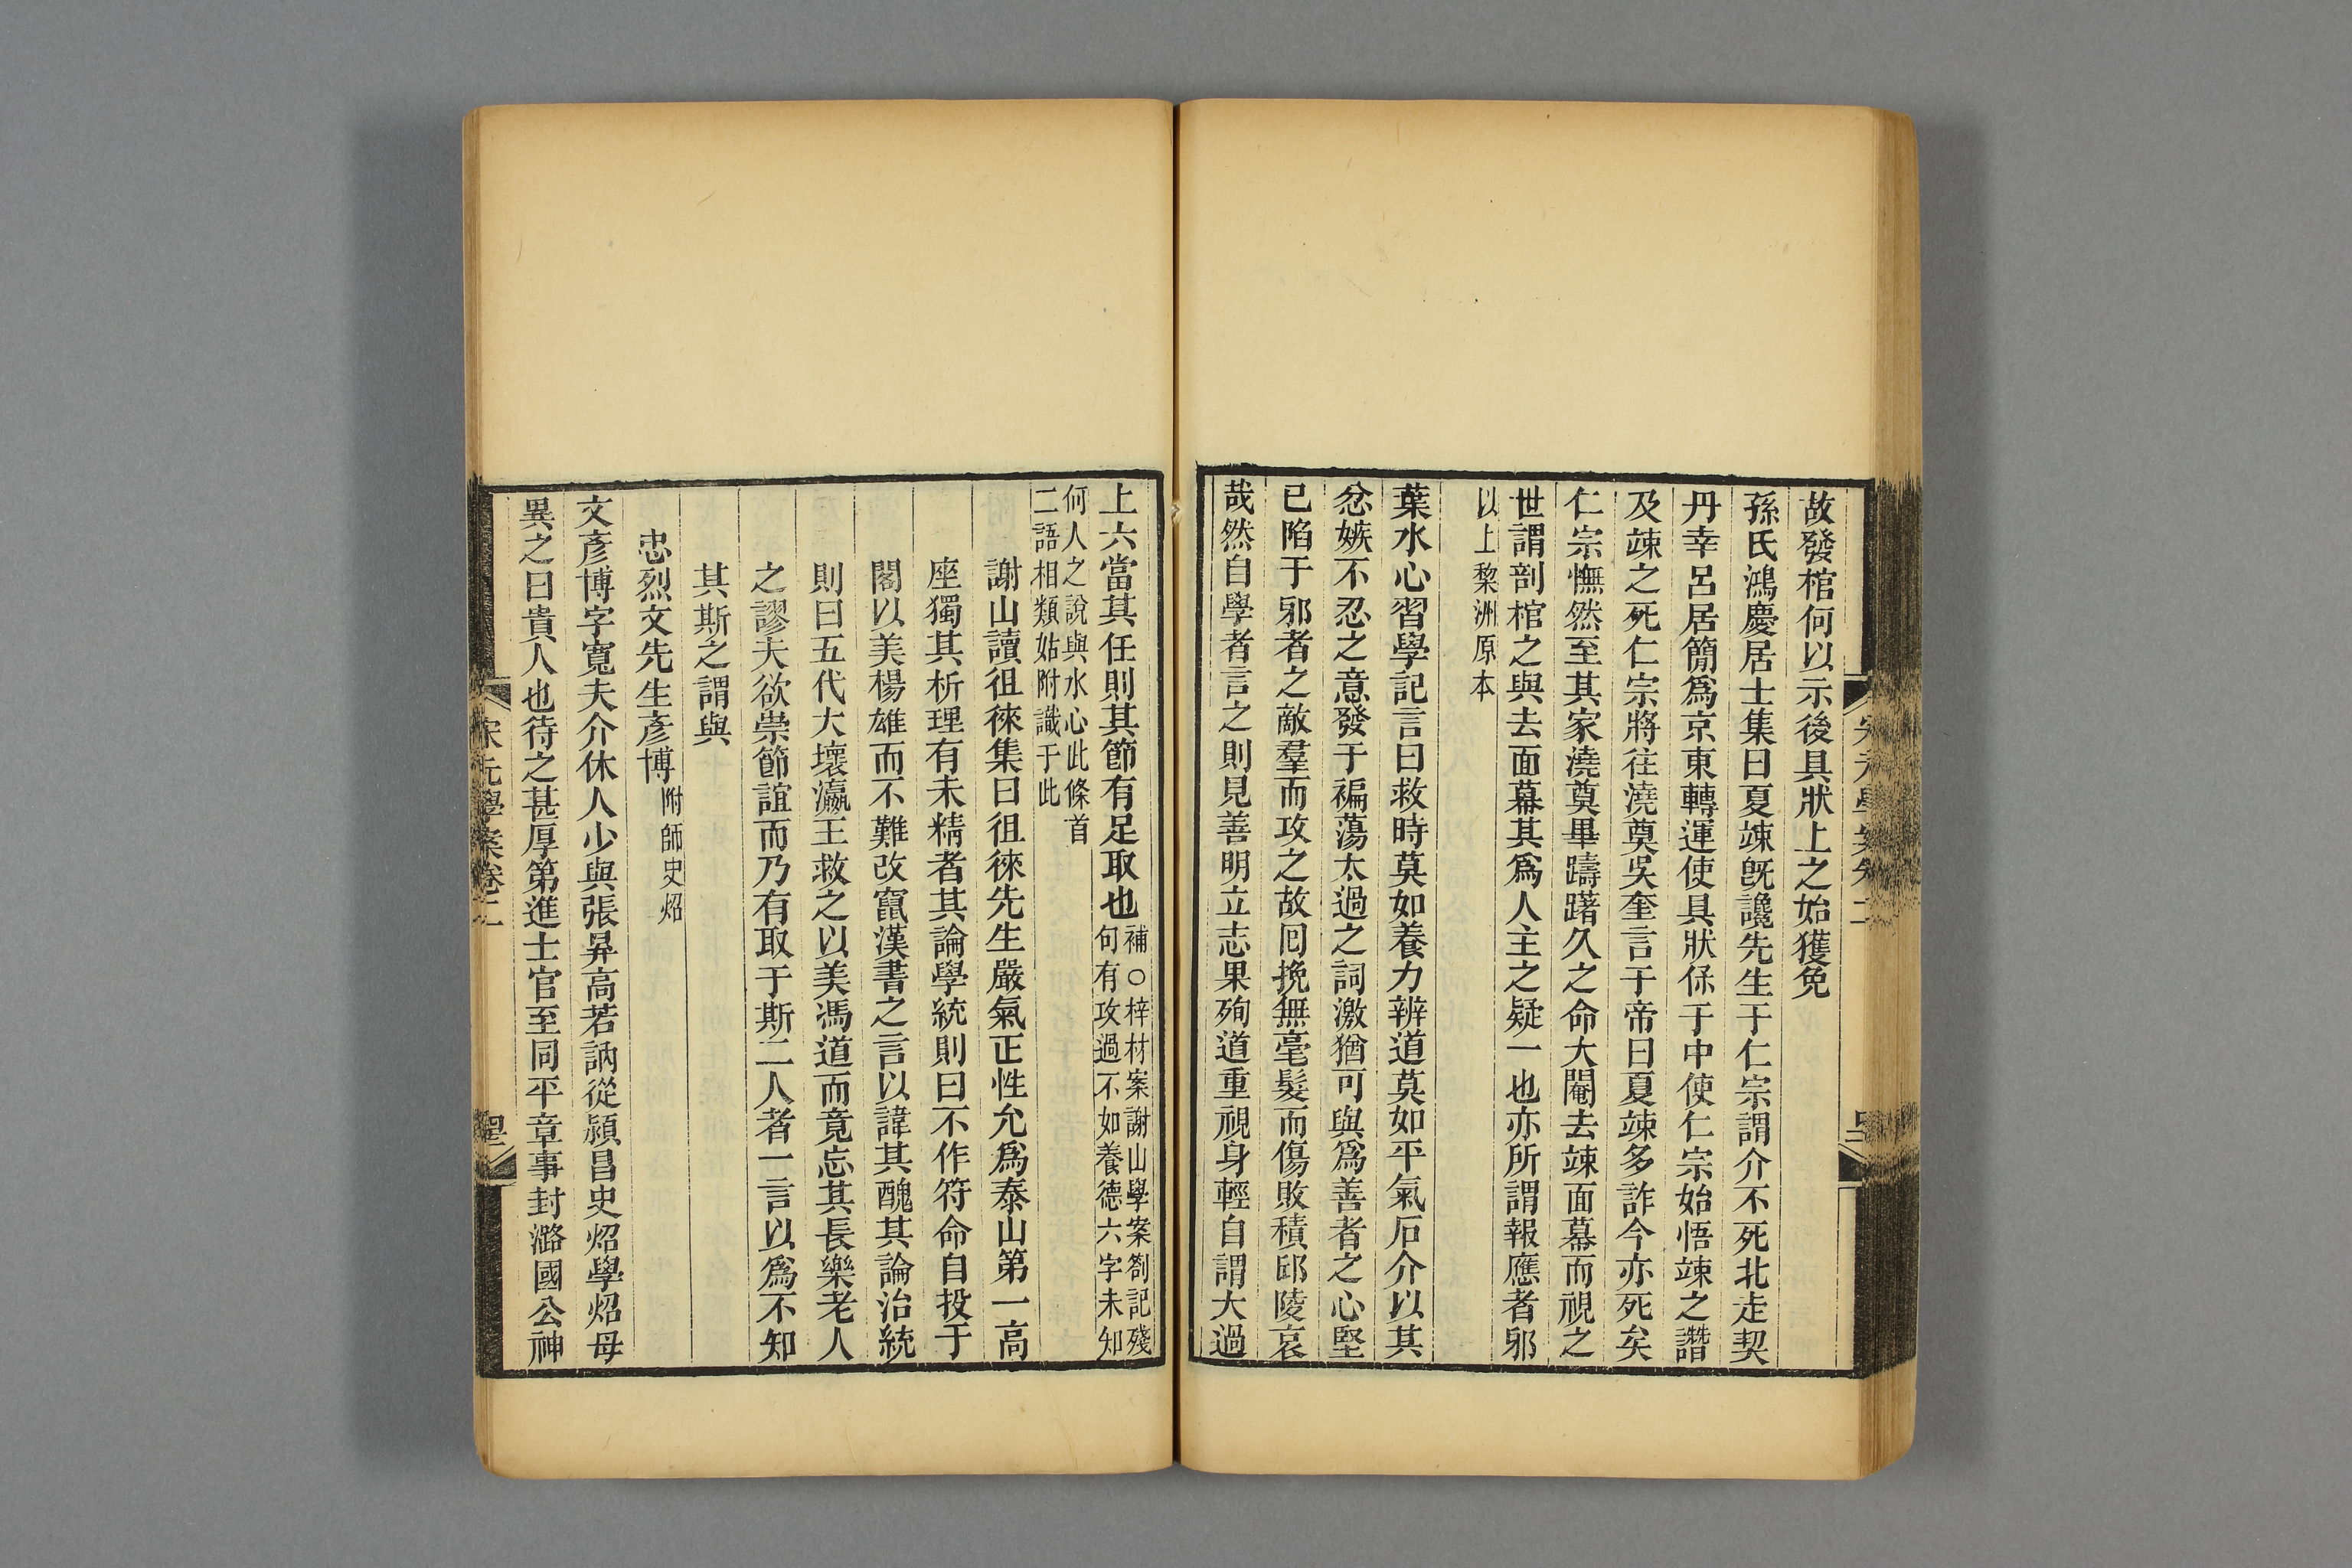 故發棺何以示後具狀上之始獲免
孫氏鴻慶居士集曰夏竦旣讒先生于仁宗謂介不死北走契
丹幸呂居簡爲京東轉運使具狀保于中使仁宗始悟竦之譖
及竦之死仁宗將往澆奠吳奎言于帝曰夏竦多詐今亦死矣
仁宗憮然至其家澆奠畢躊躇久之命大閹去竦面幕而視之
世謂剖棺之與去面幕其爲人主之疑一也亦所謂報應者邪
以上黎洲原本
葉水心習學記言曰救時莫如養力辨道莫如平氣石介以其
忿嫉不忍之意發于褊蕩太過之詞激猶可與爲善者之心堅
已陷于邪者之敵羣而攻之故囘挽無毫髮而傷敗積邱陵哀
哉然自學者言之則見善明立志果殉道重視身輕自謂大過
上六當其任則其節有足取也補○梓材案謝山學案劄記殘
句有攻過不如養德六字未知
何人之說與水心此條首
二語相類姑附識于此
謝山讀徂徠集曰徂徠先生嚴氣正性允爲泰山第一高
座獨其析理有未精者其論學統則曰不作符命自投于
閣以美楊雄而不難改竄漢書之言以諱其醜其論治統
則曰五代大壞瀛王救之以美馮道而竟忘其長樂老人
之謬夫欲崇節誼而乃有取于斯二人者一言以爲不知
其斯之謂與
忠烈文先生彥博附師史炤
文彥博字寬夫介休人少與張昪高若訥從潁昌史炤學炤母
異之曰貴人也待之甚厚第進士官至同平章事封潞國公神
宋元學案卷二